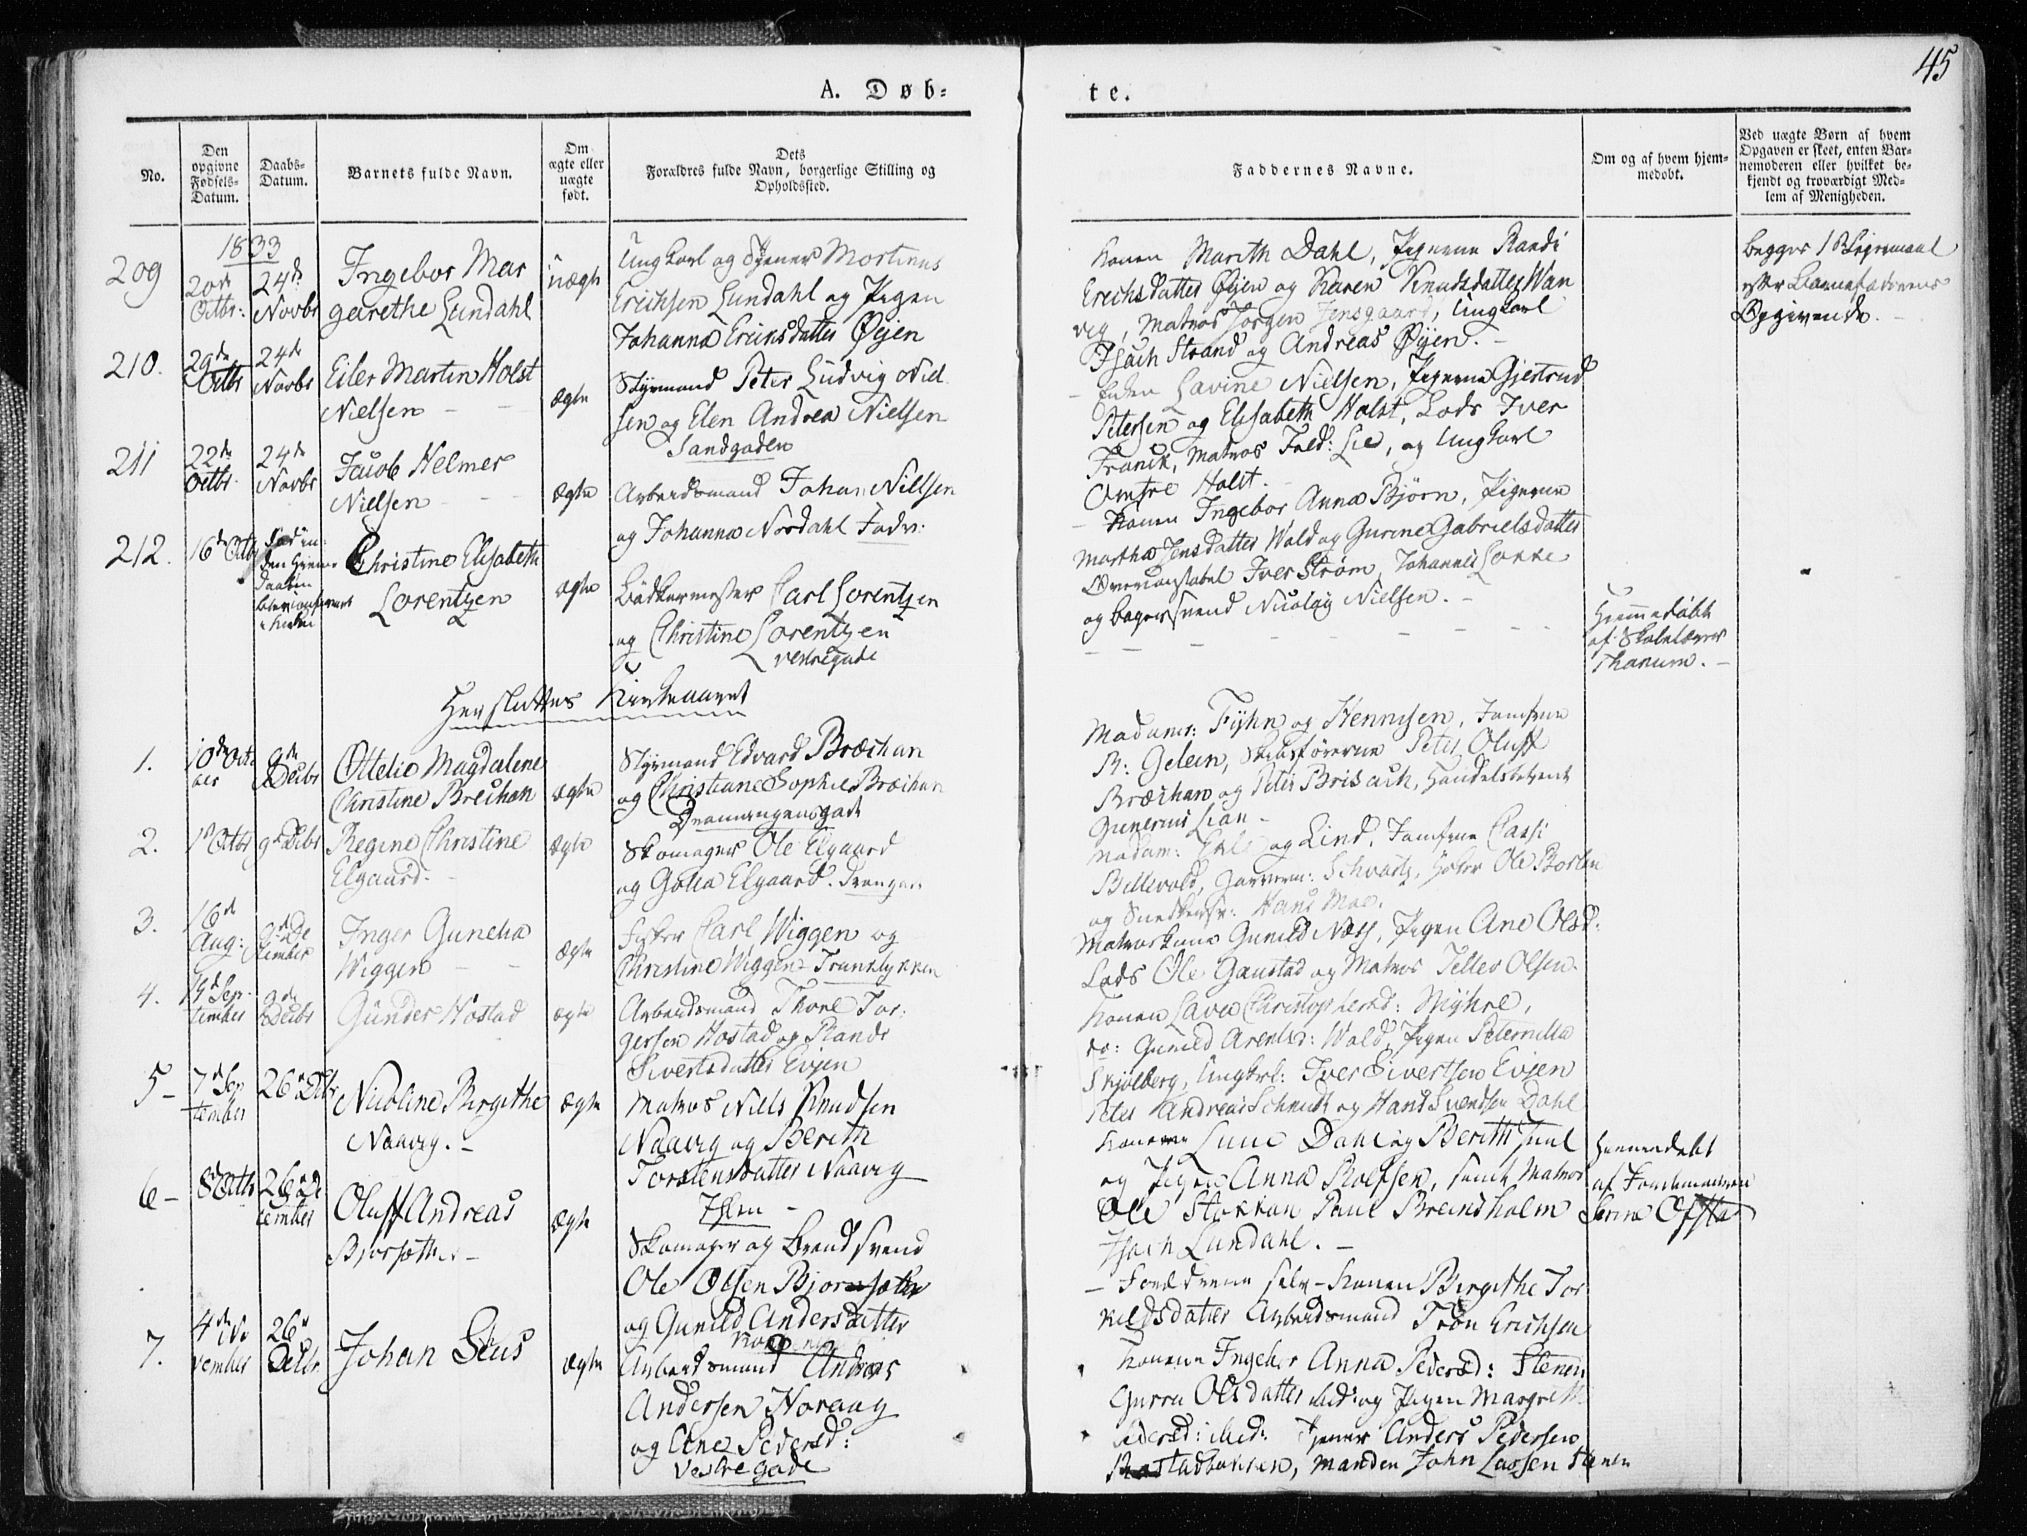 45
A. Døb=
te.
No.
Den opgivne Fødsels-Datum.
Daabs-Datum.
Barnets fulde Navn.
Om ægte eller uægte født.
Dets Forældres fulde Navn, borgerlige Stilling og Opholdssted.
Faddernes Navne.
Om og af hvem hjemmedøbt.
Ved uægte Børn af hvem Opgaven er skeet, enten Barnemoderen eller hvilket bekjendt og troværdigt Medlem af Menigheden.
1833
209
20de Octbr:
24de Novbr
Ingebor Mar
gerethe Lundahl
uægte
Ungkarl og Tjener Mortinus
Erichsen Lundahl og Pigen
Johanna Erichsdatter Øyen
Konen Marith Dahl, Pigerne Randi
Erichsdatter Øyen og Karen Knudsdatter Wan
vig, Matros Jørgen Jensgaard, Ungkarl
Isach Strand og Andreas Øyen.
begges 1
efter Barnefaderens
Opgivende.
210.
29de Octbr
24de Novbr
Eiler Martin Holst
Nielsen
ægte
Styrmand Peter Ludvig Niel
sen og Elen Andrea Nielsen
Sandgaden
Lavine Nielsen, Pigerne Gjertrud
Petersen og Elisabeth Holst, Lods Iver
Franck, Matros Fald: Lie, og Ungkarl
Holst.
211
22de Octbr
24de Novbr
Jacob Helmer
Nielsen
ægte
Arbeidsmand Johan Nielsen
og Johanna Nordahl
Konen Ingebor Anna Bjørn, Pigerne
Martha Jensdatter Wold og Gurine Gabrielsdatter
Overconstabel Iver Strøm, Johannes Lokke
og Bagersvend Nicolay Nielsen.
212.
16de Octbr
Christine Elisabeth
Lorentzen
ægte
Bødkermester Carl Lorentzen
og Christine Lorentzen
Vestregade
Hjemmedøbt
af Skolelærer
Thanum.
Her sluttes Kirkeaaret
1.
10de Octo
ber
9de Decbr
Ottelie Magdalene
Christine Brechan
ægte
Styrmand Edvard Bræchan
og Christiane Sophie Bræchan
Madamer: Fyhn og Hennisen, Jomfrue
B: Gelein, Skibsførerne Peter Oluff
Bræchan og Peter Brisach, Handelsbetjent
Gunerius Lian
2.
1de Octbr
9de Decbr
Regine Christine
Elgaard.
ægte
Skomager Ole Elgaard
og Golia Elgaard.
Madam: og Lind, Jomfrue Cassi
Billevold, Schvartz, Ole
og Snedkersv: Hans Moe.
3.
16de
Aug:
9de De
cember
Inger Gunelia
Wiggen
ægte
Fisker Carl Wiggen og
Christine Wiggen
Matroskone Gunild Næss, Pigen Ane Olsd:
Lods Ole Gaustad og Matros Teller Olsen.
4.
19de Sep
tember
9de
Decbr
Gunder Hostad
ægte
Arbeidsmand Thore Tor
gersen Hostad og Rande
Sivertsdatter Evjen
Konen Lava Christophersd: Myhre,
do: Gunild Arentsd: Wold, Pigen Peternilla
Skjølberg, Ungkrl: Iver Sivertsen Evjen
Peter Andreas Schmidt og Hans Svendsen Dahl
5
7de Sep
tember
26de Decbr
Nicoline Birgithe
Naavig.
ægte
Matros Niels Knudsen
Naavig og Berith
Torstensdatter Naavig
Ihlen
Konerne Dahl og Berith Juul
og Pigen Anna Rolfsen, samt Matros
Ole Stokkan Paul Breindsholm
Isach Lundahl.
Hjemmedøbt
af Jordemoderen
6
8de Octbr
26de De
cember
Oluff Andreas
Bjørsæther
ægte
Skomager og Brandsvend
Ole Olsen Bjørnsæther
og Gunild Andersdatter
Forældrene selv - Konen Birgithe Tor
kildsdatter Arbeidsmand Trøn Erichsen
7.
4de No
vember
26de
Decbr
Johan Seus
ægte
Arbeidsmand Andreas
Andersen Horaag
og Ane Pedersd:
Vestregade
Konerne Ingebor Anna Pedersd: Stenen
Gurru Olsdatter ibid: og Pigen Margreth
Pedersd: ibid: Tjener Anders Pedersen
Manden John Larsen Stenen